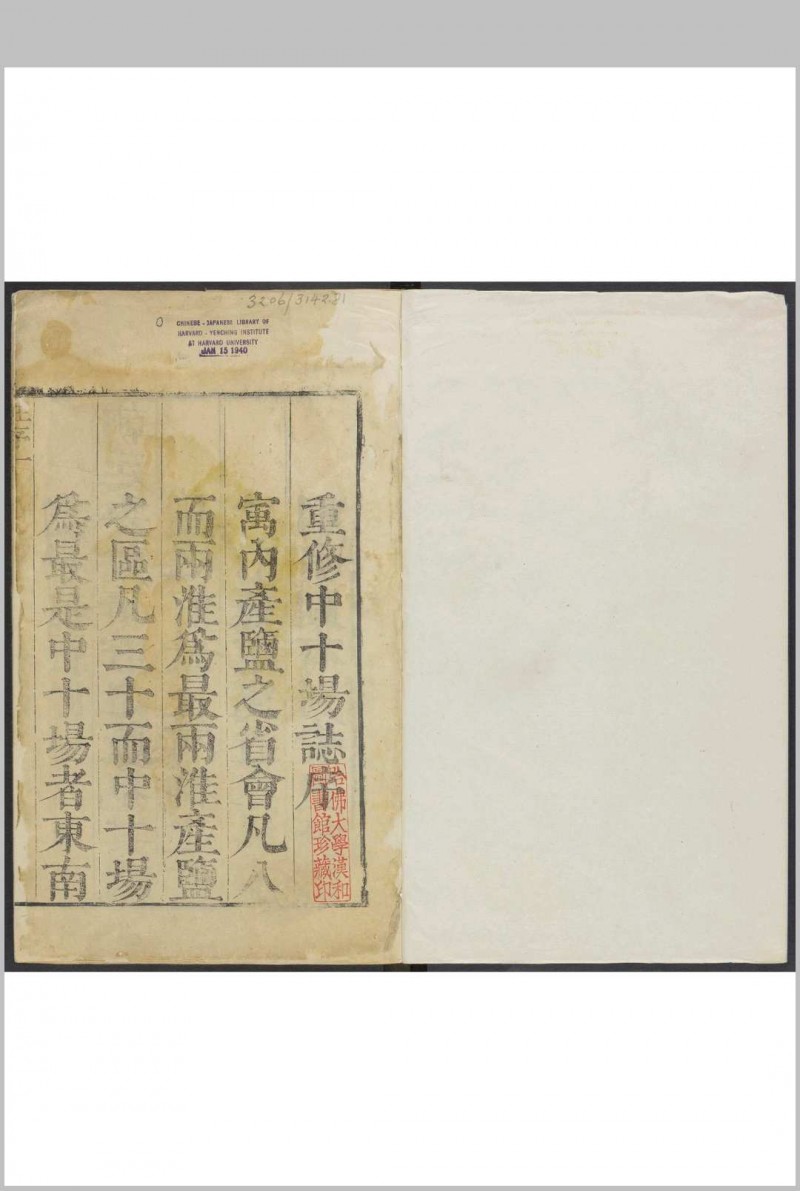 3206/314281
CHINESE - JAPANESE LIBRARY OF
HARVARD - YENCHING INSTITUTE
AT HARVARD UNIVERSITY
JAN 15 1940
重修中十場誌序
寓內產鹽之省會凡八
而兩淮爲最兩淮產鹽
之區凡三十而中十場
爲最是中十場者東南
哈佛大學漢和
圖書館珍藏印